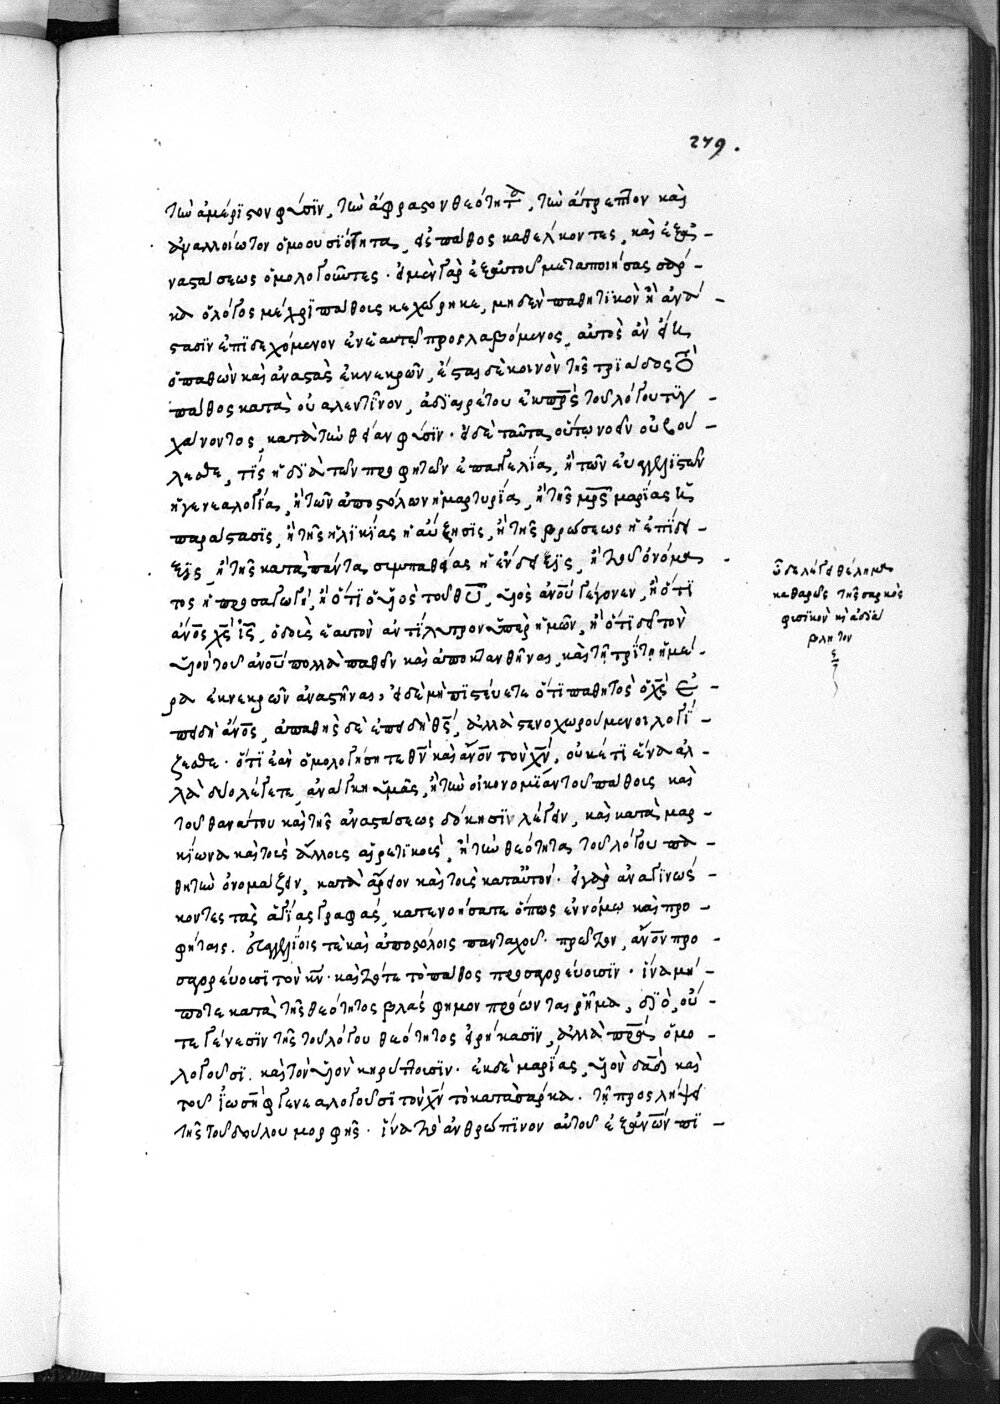 279.
τὼ ἀμέριστον φύσιν, τὼ ἄφραστον θεότητα, τὼ ἄτρεπτον καὶ
ἀναλλοίωτον ὁμοουσιότητα, εἰς πάθος καθέλκοντες, καὶ ἐξα
ναστάσεως ὁμολογοῦντες. εἰ μὲν γὰρ ἐξ αὐτοῦ μεταποιήσας σάρ-
κα ὁ λόγος μέχρι πάθους κεχώρηκε, μηδὲν παθητικὸν ἢ ἀνά-
στασιν ἐπιδεχόμενον ἐν ἑαυτῷ προσλαβόμενος, αὐτὸς ἂν εἴη καὶ
ὁ παθὼν καὶ ἀναστὰς ἐκ νεκρῶν, ἔσται δὲ κοινὸν τῆς τριάδος τὸ
πάθος κατὰ οὐαλεντῖνον, ἀδιαιρέτου ἐκ πρς τοῦ λόγου τυγ-
χάνοντος, κατὰ τὼ θείαν φύσιν. εἰ δὲ ταῦτα οὕτω νοεῖν οὐ βού-
λεσθε, τίς ἡ διὰ τῶν προφητῶν ἐπαγγελία, ἢ τῶν εὐαγγλιστῶν
ἡ γενεαλογία, ἢ τῶν ἀποστόλων ἡ μαρτυρία, ἢ τῆς μρς μαρίας ἡ
παράστασις, ἢ τῆς ἡλικίας ἡ αὔξησις, ἢ τῆς βρώσεως ἡ ἐπίδει-
ξις, ἢ τῆς κατὰ πάντα συμπαθείας ἡ ἔνδειξις, ἢ τοῦ ὀνόμα
τος ἡ προσαγωγή, ἢ ὅτι ὁ υἱὸς τοῦ θυ, υἱὸς ἀνου γέγονεν, ἢ ὅτι
ἄνος χς ις, ὁ δοὺς ἑαυτὸν ἀντίλυτρον ὑπὲρ ἡμῶν, ἢ ὅτι δεῖ τὸν
υἱὸν τοῦ ἀνου πολλὰ παθεῖν καὶ ἀποκτανθῆναι, καὶ τῇ τρίτῃ ἡμέ-
ρα ἐκ νεκρῶν ἀναστῆναι; εἰ δὲ μὴ πιστεύετε ὅτι παθητὸς ὁ χς
πειδὴ ἄνος, ἀπαθὴς δὲ ἐπειδὴ θς, ἀλλὰ στενοχωρούμενοι λογί-
ζεσθε. ὅτι ἐὰν ὁμολογήσητε θν καὶ ἄνον τὸν χν, οὐκέτι ἕνα ἀλ-
λὰ δύο λέγετε, ἀνάγκη ὑμᾶς, ἢ τὼ οἰκονομίαν τοῦ πάθους καὶ
τοῦ θανάτου καὶ τῆς ἀναστάσεως δόκησιν λέγειν, κατὰ μαρ-
κίωνα καὶ τοὺς ἄλλους αἱρετικούς, ἢ τὼ θεότητα τοῦ λόγου πα-
θητὼ ὀνομάζειν, κατὰ ἄρειον καὶ τοὺς κατ' αὐτόν. εἰ γὰρ ἀναγινώσ-
κοντες τὰς ἁγίας γραφάς, κατενοήσατε ὅπως ἐν νόμῳ καὶ προ-
φήταις. εὐαγγλίοις τὲ καὶ ἀποστόλοις πανταχοῦ. πρῶτον, ἄνον προ
σαγορεύουσι τὸν κν. καὶ τότε τὸ πάθος προσαγορεύουσιν. ἵνα μή-
ποτε κατὰ τῆς θεότητος βλάσφημον προῶνται ῥῆμα, διὸ, οὔ-
τε γένεσιν τῆς τοῦ λόγου θεότητος εἰρήκασιν, ἀλλὰ πρα ὁμο-
λογοῦσι. καὶ τὸν υἱὸν κηρύττουσιν. ἐκ δὲ μαρίας, υἱὸν δαδ καὶ
τοῦ ἰωσὴφ γενεαλογοῦσι τὸν χν τὸ κατὰ σάρκα. τῇ προσλήψει
τῆς τοῦ δούλου μορφῆς. ἵνα τὸ ἀνθρώπινον αὐτοῦ ἐξ ἀνων πι-
καθαρῶς τῆς σαρκὸς
φυσικὸν καὶ ἀδιά
βλητον